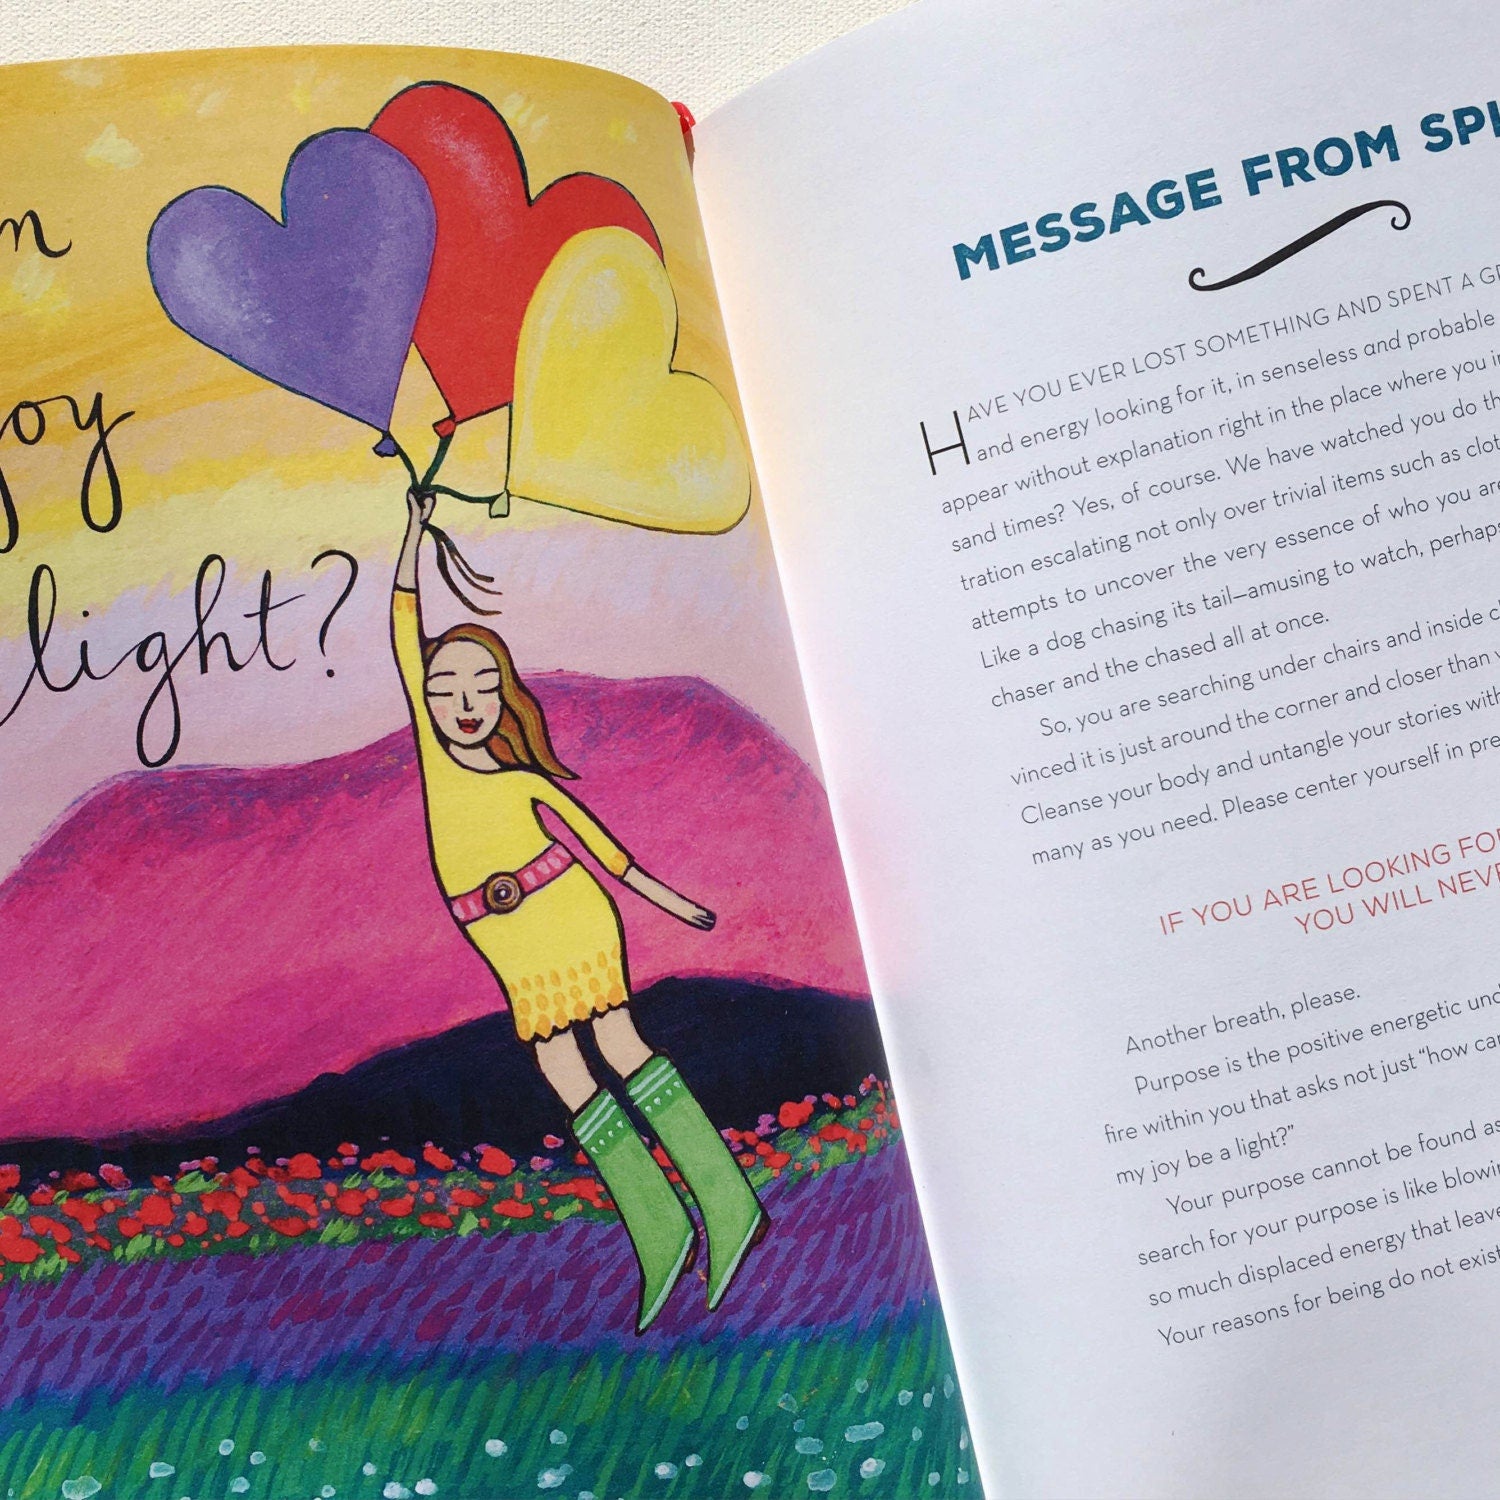 joy
light?
MESSAGE FROM
HAVE YOU EVER LOST SOMETHING AND SPENT A
and energy looking for it, in senseless and probable
appear without explanation right in the place where you
sand times? Yes, of course. We have watched you do
tration escalating not only over trivial items such as
attempts to uncover the very essence of who you
Like a dog chasing its tail—amusing to watch, perhaps
chaser and the chased all at once.
So, you are searching under chairs and inside
vinced it is just around the corner and closer than
Cleanse your body and untangle your stories
many as you need. Please center yourself in
IF YOU ARE LOOKING
YOU WILL
Another breath, please.
Purpose is the positive energetic
fire within you that asks not just “how
my joy be a light?”
Your purpose cannot be found
search for your purpose is like
so much displaced energy that
Your reasons for being do not